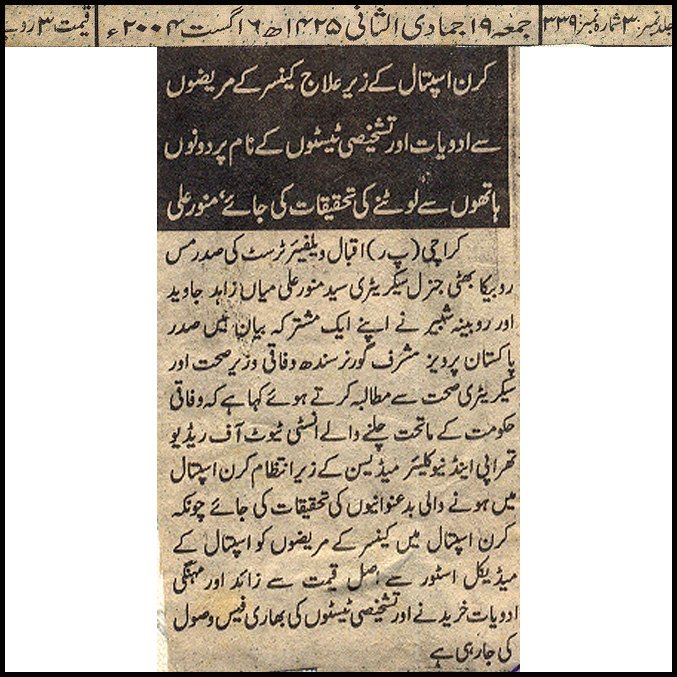 جلد نمبر: ۳ شمارہ نمبر ۳۳۹ جمعہ ۱۹ جمادی الثانی ۱۴۲۵ھ ۶ اگست ۲۰۰۴ء قیمت ۳ روپے
کرن اسپتال کے زیر علاج کینسر کے مریضوں
سے ادویات اور تشخیصی ٹیسٹوں کے نام پر دونوں
ہاتھوں سے لوٹنے کی تحقیقات کی جائے‘ منور علی
کراچی (پ ر) اقبال ویلفیئر ٹرسٹ کی صدر مس
روبیکا بھٹی جنرل سیکریٹری سید منور علی میاں زاہد جاوید
اور روبینہ شبیر نے اپنے ایک مشترکہ بیان میں صدر
پاکستان پرویز مشرف گورنر سندھ وفاقی وزیر صحت اور
سیکریٹری صحت سے مطالبہ کرتے ہوئے کہا ہے کہ وفاقی
حکومت کے ماتحت چلنے والے انسٹی ٹیوٹ آف ریڈیو
تھراپی اینڈ نیوکلیئر میڈیسن کے زیر انتظام کرن اسپتال
میں ہونے والی بدعنوانیوں کی تحقیقات کی جائے چونکہ
کرن اسپتال میں کینسر کے مریضوں کو اسپتال کے
میڈیکل اسٹور سے اصل قیمت سے زائد اور مہنگی
ادویات خریدنے اور تشخیصی ٹیسٹوں کی بھاری فیس وصول
کی جارہی ہے